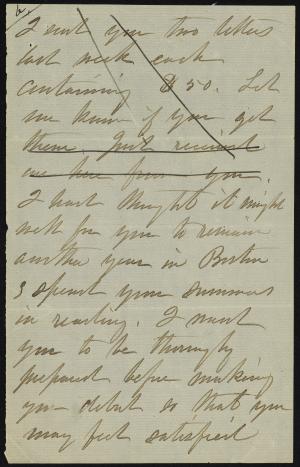 6
I sent you two letters
last week each
containing $50. Let
me know if you get
them. Just received
one here from you.
I had thought it might
well for you to remain
another year in Boston
& spend your summers
in reading. I want
you to be thoroughly
prepared before making
your debut so that you
may feel satisfied